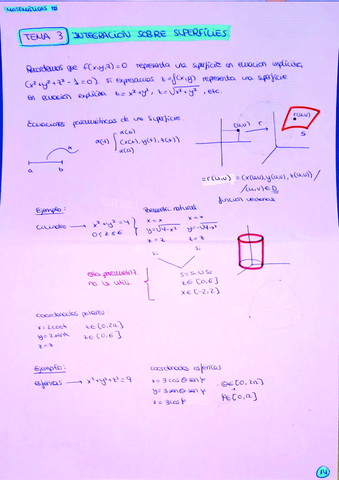 MATEMÁTICAS III
TEMA 3 INTEGRACIÓN SOBRE SUPERFICIES
Recordemos que f(x,y,z)=0 representa una superficie en ecuación implícita,
(x²+y²+z²-1=0). Si expresamos z=f(x,y) representa una superficie
en ecuación explícita z=x²+y², z=√x²+y², etc.
Ecuaciones paramétricas de una superficie.
(u,v) r r(u,v)
S
a b
(x(t), y(t), z(t))
r(u,v) = (x(u,v), y(u,v), z(u,v)) /
/(u,v)∈D
función vectorial
Ejemplo:
Cilindro → x²+y²=4
0≤z≤6
x=x x=x
y=√4-x² y=-√4-x²
z=z z=z
S₁ S₂
esta parametriz.
no la utili.
S=S₁∪S₂
z∈[0,6]
x∈[-2,2]
coordenadas polares
x=2cost t∈[0,2π]
y=2sent z∈[0,6]
z=z
Ejemplo:
esferas → x²+y²+z²=9
coordenadas esféricas
x=3cosθsenφ θ∈[0,2π]
y=3senθsenφ φ∈[0,π]
z=3cosφ
14